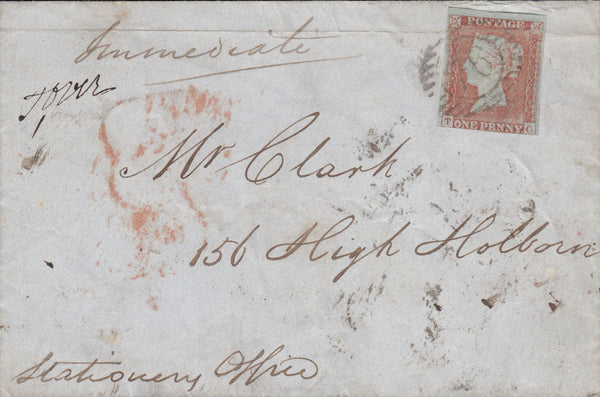 Immediate
POSTAGE
T ONE PENNY G
Mr Clark
156 High Holborn
Stationery Office